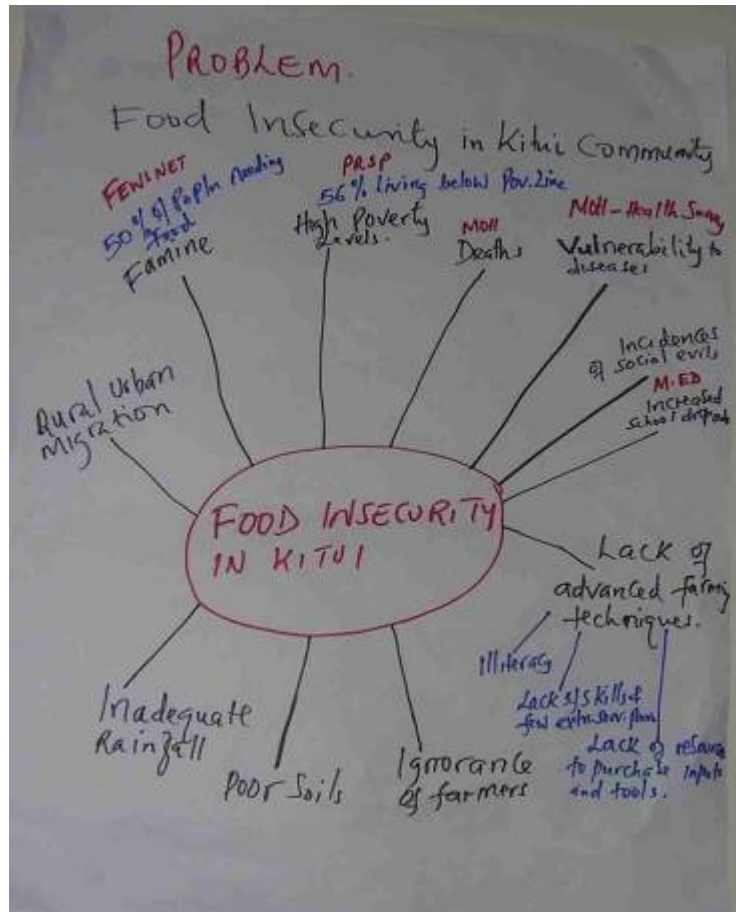 PROBLEM.
Food Insecurity in Kitui Community
FEWSNET
50% of Popln needing
Food
Famine
PRSP
56% living below Pov. Line
High Poverty
Levels.
MOH
Deaths
MOH - Health Survey
Vulnerability to
diseases
Incidences
of social evils
M.ED
Increased
school dropouts
Rural Urban
Migration
FOOD INSECURITY
IN KITUI
Lack of
advanced farming
techniques.
Illiteracy
Lack of skills &
few
Lack of resource
to purchase inputs
and tools.
Inadequate
Rainfall
Poor Soils
Ignorance
of farmers